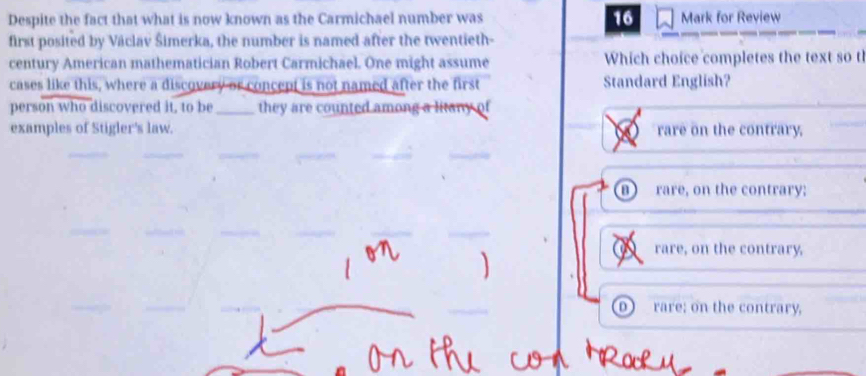 Despite the fact that what is now known as the Carmichael number was
first posited by Václav Šimerka, the number is named after the twentieth-
century American mathematician Robert Carmichael. One might assume
cases like this, where a discovery or concept is not named after the first
person who discovered it, to be ______ they are counted among a litany of
examples of Stigler's law.
16 Mark for Review
Which choice completes the text so th
Standard English?
rare on the contrary,
B rare, on the contrary;
rare, on the contrary,
D rare; on the contrary,
, on )
on the contrary